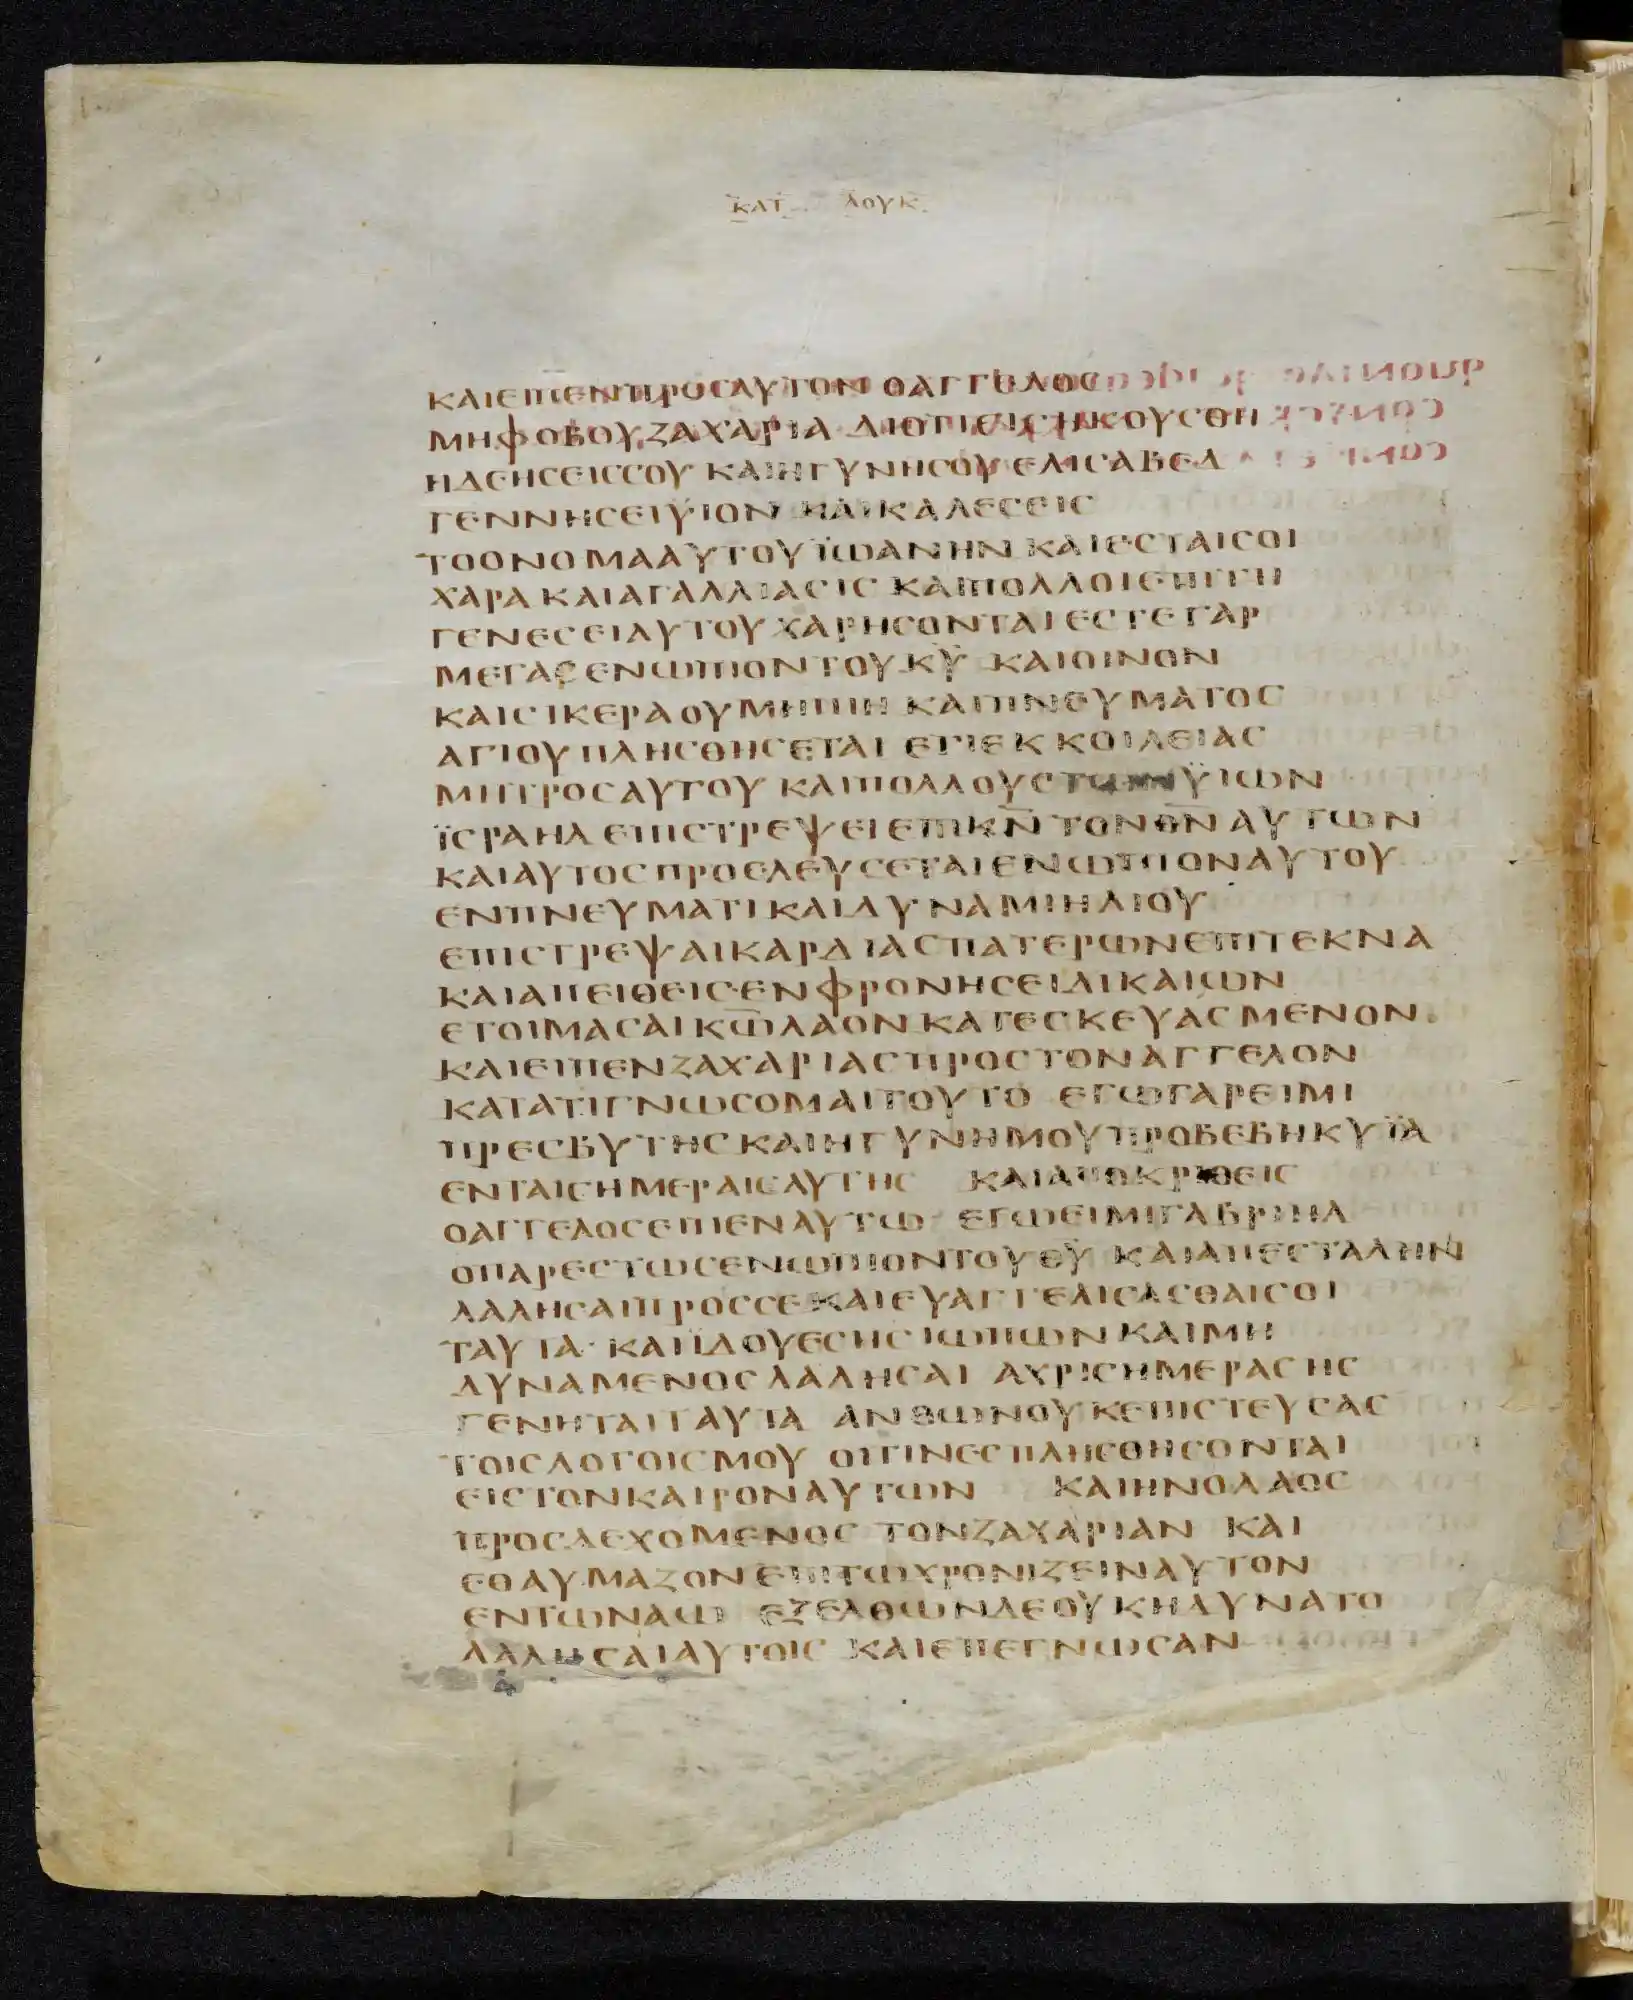 ΚΑΤ ΛΟΥΚ
ΚΑΙΕΙΠΕΝΠΡΟϹΑΥΤΟΝ ΟΑΓΓΕΛΟϹ
ΜΗΦΟΒΟΥΖΑΧΑΡΙΑ ΔΙΟΤΙΕΙϹΗΚΟΥϹΘΗ
ΗΔΕΗϹΕΙϹϹΟΥ ΚΑΙΗΓΥΝΗϹΟΥΕΛΙϹΑΒΕΔ
ΓΕΝΝΗϹΕΙΫΙΟΝ ΚΑΙΚΑΛΕϹΕΙϹ
ΤΟΟΝΟΜΑΑΥΤΟΥΪΩΑΝΗΝ ΚΑΙΕϹΤΑΙϹΟΙ
ΧΑΡΑΚΑΙΑΓΑΛΛΙΑϹΙϹ ΚΑΙΠΟΛΛΟΙΕΠΙΤΗ
ΓΕΝΕϹΕΙΑΥΤΟΥΧΑΡΗϹΟΝΤΑΙΕϹΤΕΓΑΡ
ΜΕΓΑϹΕΝΩΠΙΟΝΤΟΥΚ̅Υ̅ ΚΑΙΟΙΝΟΝ
ΚΑΙϹΙΚΕΡΑΟΥΜΗΠΙΗ ΚΑΙΠΝΕΥΜΑΤΟϹ
ΑΓΙΟΥΠΛΗϹΘΗϹΕΤΑΙ ΕΤΙΕΚΚΟΙΛΕΙΑϹ
ΜΗΤΡΟϹΑΥΤΟΥ ΚΑΙΠΟΛΛΟΥϹΤΩΝΫΙΩΝ
ΪϹΡΑΗΛΕΠΙϹΤΡΕΨΕΙΕΠΙΚ̅Ν̅ΤΟΝΘ̅Ν̅ΑΥΤΩΝ
ΚΑΙΑΥΤΟϹΠΡΟΕΛΕΥϹΕΤΑΙΕΝΩΠΙΟΝΑΥΤΟΥ
ΕΝΠΝΕΥΜΑΤΙΚΑΙΔΥΝΑΜΙΗΛΙΟΥ
ΕΠΙϹΤΡΕΨΑΙΚΑΡΔΙΑϹΠΑΤΕΡΩΝΕΠΙΤΕΚΝΑ
ΚΑΙΑΠΕΙΘΕΙϹΕΝΦΡΟΝΗϹΕΙΔΙΚΑΙΩΝ
ΕΤΟΙΜΑϹΑΙΚ̅Ω̅ΛΑΟΝΚΑΤΕϹΚΕΥΑϹΜΕΝΟΝ
ΚΑΙΕΙΠΕΝΖΑΧΑΡΙΑϹΠΡΟϹΤΟΝΑΓΓΕΛΟΝ
ΚΑΤΑΤΙΓΝΩϹΟΜΑΙΤΟΥΤΟ ΕΓΩΓΑΡΕΙΜΙ
ΠΡΕϹΒΥΤΗϹΚΑΙΗΓΥΝΗΜΟΥΠΡΟΒΕΒΗΚΥΪΑ
ΕΝΤΑΙϹΗΜΕΡΑΙϹΑΥΤΗϹ ΚΑΙΑΠΟΚΡΙΘΕΙϹ
ΟΑΓΓΕΛΟϹΕΙΠΕΝΑΥΤΩ ΕΓΩΕΙΜΙΓΑΒΡΙΗΛ
ΟΠΑΡΕϹΤΩϹΕΝΩΠΙΟΝΤΟΥΘ̅Υ̅ ΚΑΙΑΠΕϹΤΑΛΗΝ
ΛΑΛΗϹΑΙΠΡΟϹϹΕΚΑΙΕΥΑΓΓΕΛΙϹΑϹΘΑΙϹΟΙ
ΤΑΥΤΑ· ΚΑΙΪΔΟΥΕϹΗϹΙΩΠΩΝΚΑΙΜΗ
ΔΥΝΑΜΕΝΟϹΛΑΛΗϹΑΙ ΑΧΡΙϹΗΜΕΡΑϹΗϹ
ΓΕΝΗΤΑΙΤΑΥΤΑ ΑΝΘΩΝΟΥΚΕΠΙϹΤΕΥϹΑϹ
ΤΟΙϹΛΟΓΟΙϹΜΟΥ ΟΙΤΙΝΕϹΠΛΗϹΘΗϹΟΝΤΑΙ
ΕΙϹΤΟΝΚΑΙΡΟΝΑΥΤΩΝ ΚΑΙΗΝΟΛΑΟϹ
ΠΡΟϹΔΕΧΟΜΕΝΟϹ ΤΟΝΖΑΧΑΡΙΑΝ ΚΑΙ
ΕΘΑΥΜΑΖΟΝΕΠΙΤΩΧΡΟΝΙΖΕΙΝΑΥΤΟΝ
ΕΝΤΩΝΑΩ ΕΞΕΛΘΩΝΔΕΟΥΚΗΔΥΝΑΤΟ
ΛΑΛΗϹΑΙΑΥΤΟΙϹ ΚΑΙΕΠΕΓΝΩϹΑΝ